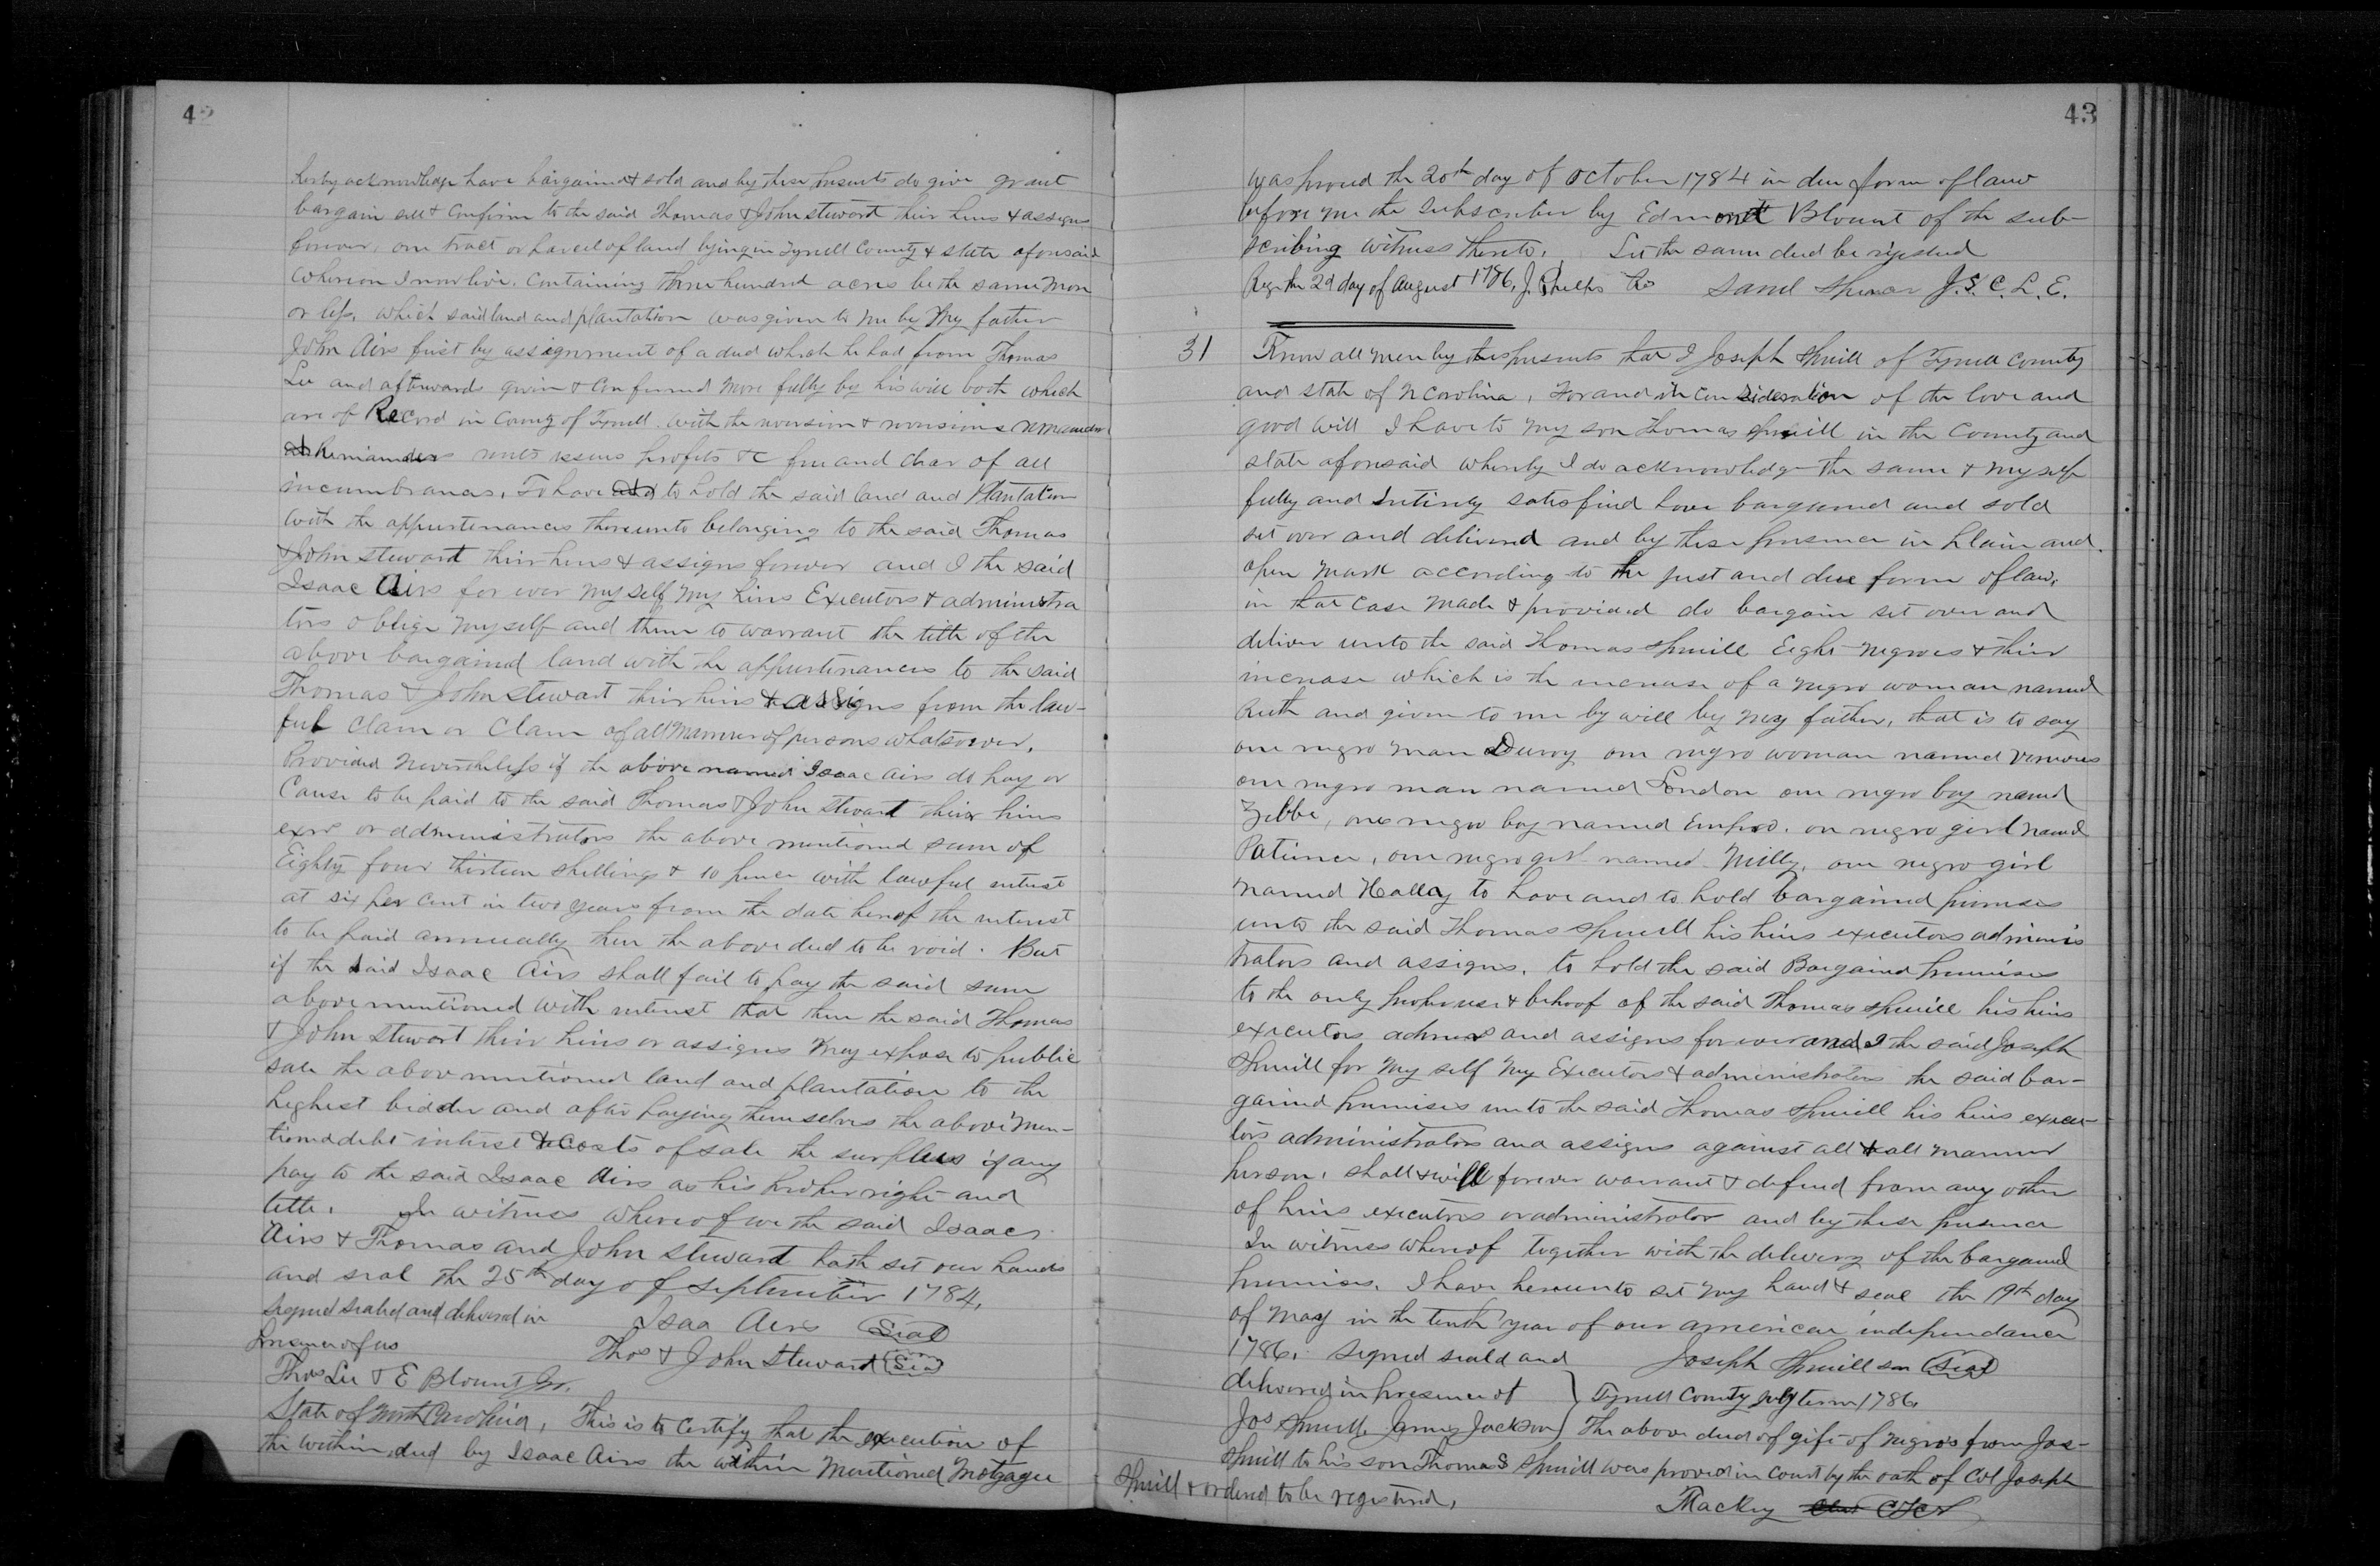 42
hereby acknowledge have bargained & sold and by these presents do give grant
bargain sell & Confirm to the said Thomas & John steward their heirs & assigns
forever, one tract or parcel of land lying in Tyrrell County & state aforesaid
whereon I now live. Containing three hundred acres be the same more
or less, which said land and plantation was given to me by My father
John Airs first by assignment of a deed which he had from Thomas
Lee and afterwards given & Confirmed more fully by his will both which
are of Record in County of Tyrrell with the reversion & reversions remainder
remainders rents issues profits &c free and clear of all
incumbrances, To have and to hold the said land and Plantation
with the appurtenances thereunto belonging to the said Thomas
& John steward their heirs & assigns forever and I the said
Isaac Airs for ever my self my heirs Executors & administra
tors oblige myself and them to warrant the title of the
above bargained land with the appurtenances to the said
Thomas & John stewart their heirs & assigns from the law-
ful Claim or Claim of all Manner of persons whatsoever.
Provided Nevertheless if the above named Isaac Airs do pay or
Cause to be paid to the said Thomas & John stewart their heirs
exrs or administrators the above mentioned sum of
Eighty four thirteen shillings & 10 pence with lawful interest
at six per cent in two years from the date hereof the interest
to be paid annually then the above deed to be void. But
if the said Isaac Airs shall fail to pay the said sum
above mentioned with interest that then the said Thomas
& John stewart their heirs or assigns may expose to public
sale the above mentioned land and plantation to the
highest bidder and after paying themselves the above men-
tioned debt interest & Costs of sale the surplus if any
pay to the said Isaac Airs as his proper right and
title. In witness whereof we the said Isaac
Airs & Thomas and John steward hath set our hands
and seal the 25th day of September 1784.
signed sealed and delivered in Isaa Airs Seal
presence of us Thos & John Steward Seal
Thos Lee & E Blount Jr.
State of North Carolina, This is to Certify that the execution of
the within deed by Isaac Airs the within Mentioned Motgagee
43
was proved the 20th day of October 1784 in due form of law
before me the subscriber by Edmond Blount of the sub-
scribing witness thereto. Let the same deed be registed
Reg. the 2d day of August 1786, J. Phelps Rs Saml Spencer J. S. C. L. E.
31
Know all men by thes presents that I Joseph Spruill of Tyrrell County
and state of N Carolina, For and in Consideration of the love and
good will I have to my son Thomas Spruill in the County and
state aforesaid whereby I do acknowledge the same & my self
fully and Intirely satisfied have bargained and sold
set over and delivered and by these presence in plain and
open mark according to the just and due form of law,
in that case made & provided do bargain set over and
deliver unto the said Thomas Spruill Eight negroes & their
increase which is the increase of a negro woman named
Ruth and given to me by will by my father, that is to say
one negro man one negro woman named
one negro man named London one negro boy named
Zebbe, one negro boy named on negro girl named
Patience, one negro girl named Milly, one negro girl
named to have and to hold bargained premises
unto the said Thomas Spruill his heirs executors adminis
trators and assigns, to hold the said Bargained premises
to the only proper use & behoof of the said Thomas Spruill his heirs
executors admrs and assigns for ever and I the said Joseph
Spruill for my self my Executors & administrators the said bar-
gained premises unto the said Thomas Spruill his heirs execu-
tors administrators and assigns against all & all manner
person, shall & will forever warrant & defend from any other
of heirs executors or administrator and by these presence
In witness whereof together with the delivery of the bargained
premises, I have hereunto set my hand & seal the 19th day
of May in the tenth year of our american independance
1786. Signed seald and Joseph Spruill sen Seal
delivered in presence of } Tyrrell County July term 1786.
Jos Spruill, James Jackson } The above deed of gift of negros from Jos-
Spruill to his son Thomas Spruill was proved in Court by the oath of Col Joseph
Spruill & ordered to be registered. Mackey